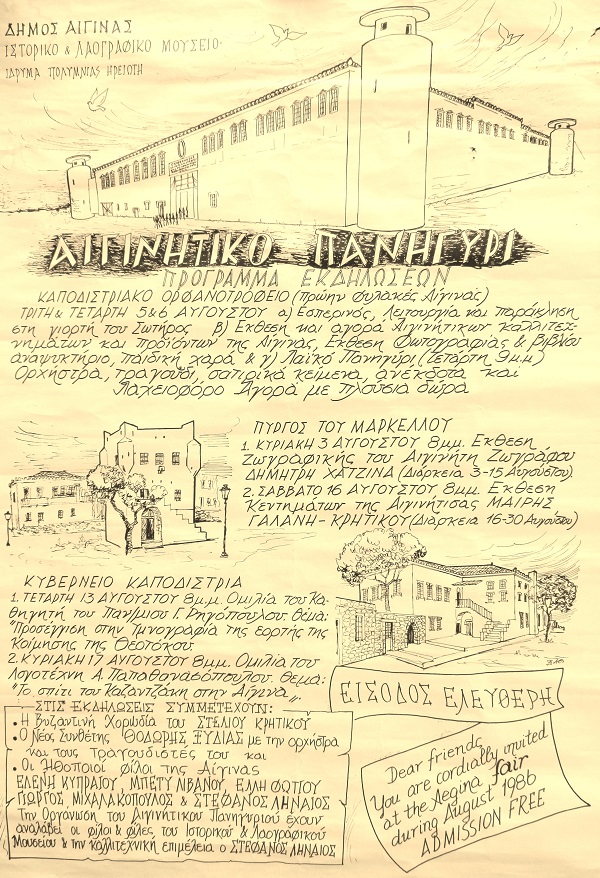 ΔΗΜΟΣ ΑΙΓΙΝΑΣ
ΙΣΤΟΡΙΚΟ & ΛΑΟΓΡΑΦΙΚΟ ΜΟΥΣΕΙΟ
ΙΔΡΥΜΑ ΠΟΛΥΜΝΙΑΣ ΗΡΕΙΩΤΗ
ΑΙΓΙΝΗΤΙΚΟ ΠΑΝΗΓΥΡΙ
ΠΡΟΓΡΑΜΜΑ ΕΚΔΗΛΩΣΕΩΝ
ΚΑΠΟΔΙΣΤΡΙΑΚΟ ΟΡΦΑΝΟΤΡΟΦΕΙΟ (πρώην φυλακές Αίγινας)
ΤΡΙΤΗ & ΤΕΤΑΡΤΗ 5 & 6 ΑΥΓΟΥΣΤΟΥ α) Εσπερινός, Λειτουργία και παράκληση
στη γιορτή του Σωτήρος β) Εκθεση και αγορά Αιγινήτικων καλλιτεχ-
νημάτων και προϊόντων της Αίγινας, Εκθεση Φωτογραφίας & βιβλίου
αναψυκτήριο, παιδική χαρά & γ) Λαϊκό Πανηγύρι (Τετάρτη 9 μ.μ)
Ορχήστρα, τραγούδι, σατιρικά κείμενα, ανέκδοτα και
Λαχειοφόρο Αγορά με πλούσια δώρα
ΠΥΡΓΟΣ ΤΟΥ ΜΑΡΚΕΛΛΟΥ
1. ΚΥΡΙΑΚΗ 3 ΑΥΓΟΥΣΤΟΥ 8μμ. Εκθεση
Ζωγραφικής του Αιγινήτη Ζωγράφου
ΔΗΜΗΤΡΗ ΧΑΤΖΙΝΑ (Διάρκεια 3-15 Αυγούστου)
2. ΣΑΒΒΑΤΟ 16 ΑΥΓΟΥΣΤΟΥ 8μμ. Εκθεση
Κεντημάτων της Αιγινήτισας ΜΑΙΡΗΣ
ΓΑΛΑΝΗ-ΚΡΗΤΙΚΟΥ (Διάρκεια 16-30 Αυγούστου)
ΚΥΒΕΡΝΕΙΟ ΚΑΠΟΔΙΣΤΡΙΑ
1. ΤΕΤΑΡΤΗ 13 ΑΥΓΟΥΣΤΟΥ 8μ.μ. Ομιλία του Κα-
θηγητή του Παν/μιου Γ. Ρηγόπουλου θέμα:
"Προσέγγιση στην Υμνογραφία της εορτής της
Κοίμησης της Θεοτόκου.
2. ΚΥΡΙΑΚΗ 17 ΑΥΓΟΥΣΤΟΥ 8μμ. Ομιλία του
Λογοτέχνη Α. Παπαθανασόπουλου. θέμα:
"Το σπίτι του Καζαντζάκη στην Αίγινα„
ΕΙΣΟΔΟΣ ΕΛΕΥΘΕΡΗ
ΣΤΙΣ ΕΚΔΗΛΩΣΕΙΣ ΣΥΜΜΕΤΕΧΟΥΝ:
• Η Βυζαντινή Χορωδία του ΣΤΕΛΙΟΥ ΚΡΗΤΙΚΟΥ
• Ο Νέος Συνθέτης ΘΟΔΩΡΗΣ ΞΥΔΙΑΣ με την ορχήστρα
και τους τραγουδιστές του και
• Οι Ηθοποιοί φίλοι της Αίγινας
ΕΛΕΝΗ ΚΥΠΡΑΙΟΥ, ΜΠΕΤΥ ΛΙΒΑΝΟΥ, ΕΛΛΗ ΦΩΤΙΟΥ
ΓΙΩΡΓΟΣ ΜΙΧΑΛΑΚΟΠΟΥΛΟΣ & ΣΤΕΦΑΝΟΣ ΛΗΝΑΙΟΣ
Την Οργάνωση του Αιγινήτικου Πανηγυριού έχουν
αναλάβει οι φίλοι & φίλες του Ιστορικού & Λαογραφικού
Μουσείου & την καλλιτεχνική επιμέλεια ο ΣΤΕΦΑΝΟΣ ΛΗΝΑΙΟΣ
Dear friends,
You are cordially invited
at the Aegina fair
during August 1986
ADMISSION FREE